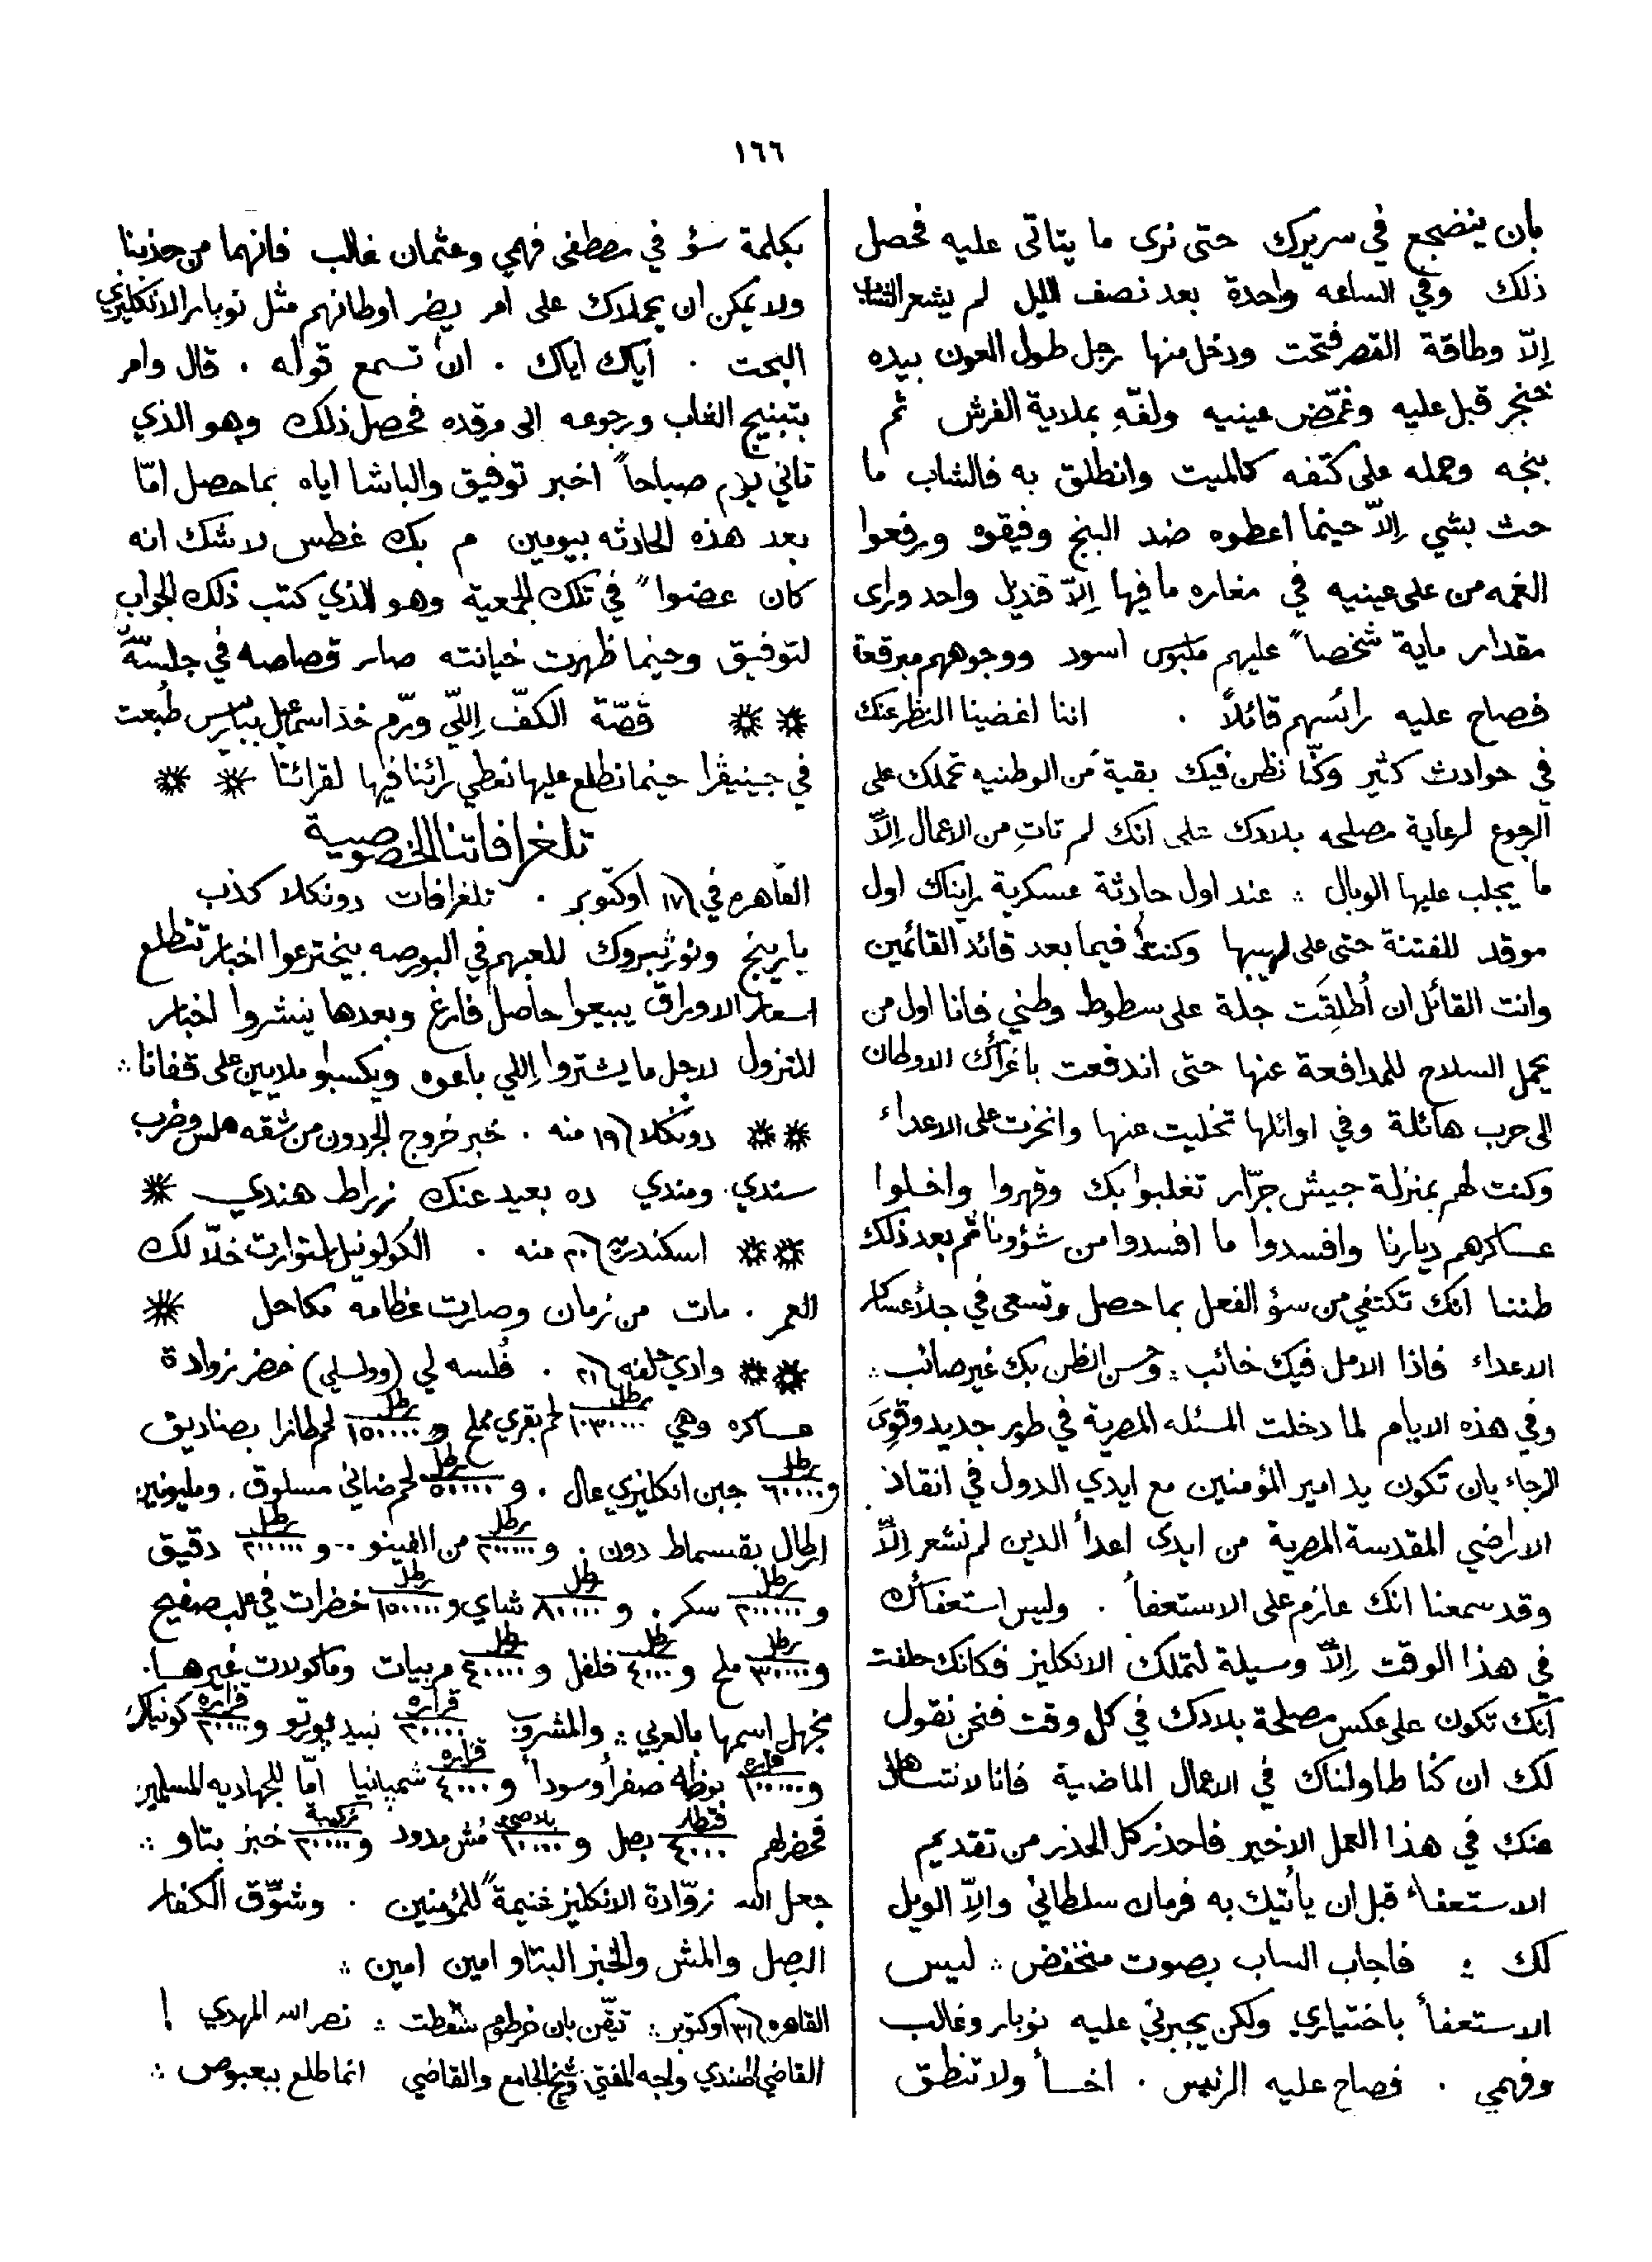 ١٦٦
بأن ينضجع في سريرك حتى نرى ما يتاتى عليه فحصل
ذلك وفي الساعه واحدة بعد نصف الليل لم يشعر الشاب
اِلاّ وطاقة القصر فتحت ودخل منها رجل طول العون بيده
خنجر قبل عليه وغمّض عينيه ولفّهِ بملاية الفرش ثم
بنجه وحمله على كتفه كالميت وانطلق به فالشاب ما
حث بشي اِلاّ حينما اعطوه ضد البنج وفيقوه ورفعوا
الغمه من على عينيه في مغاره ما فيها اِلاّ قنديل واحد وراى
مقدار ماية شخصاً عليهم ملبوس اسود ووجوههم مبرقعة
فصاح عليه رائسهم قائلاً . اننا اغضينا النظر عنك
في حوادث كثير وكنّا نظن فيك بقية من الوطنيه تحملك على
الرجوع لرعاية مصلحه بلادك على انك لم تاتِ من الاعمال اِلاّ
ما يجلب عليها الوبال ؞ عند اول حادثة عسكرية رايناك اول
موقد للفتنة حتى على لهيبها وكنت فيما بعد قائد القائمين
وانت القائل ان أُطلِقَت جلة على سطوط وطني فانا اول من
يحمل السلاح للمدافعة عنها حتى اندفعت باغرائك الاوطان
الى حرب هائلة وفي اوائلها تخليت عنها وانخزت على الاعداء
وكنت لهم بمنزلة جيش جرّار تغلبوا بك وقهروا واخلوا
عساكرهم ديارنا وافسدوا ما افسدوا من شؤوننا ثم بعد ذلك
ظننا انك تكتفي من سؤ الفعل بما حصل وتسعى في جلأ عساكر
الاعداء فاذا الامل فيك خائب ؞ وحسن الظن بك غير صائب ؞
وفي هذه الايام لما دخلت المسئله المصرية في طور جديد وقوِىَ
الرجاء بان تكون يد امير المؤمنين مع ايدي الدول في انقاذ
الاراضي المقدسة المصرية من ايدى اعدأ الدين لم نشعر اِلاّ
وقد سمعنا انك عازم على الاستعفأ . وليس استعفائك
في هذا الوقت اِلاّ وسيلة لتملك الانكليز فكانك حلفت
انك تكون على عكس مصلحة بلادك في كل وقت فنحن نقول
لك ان كنا طاولناك في الاعمال الماضية فانا لا نتساهل
عنك في هذا العمل الاخير فاحذر كل الحذر من تقديم
الاستعفاء قبل ان يأتيك به فرمان سلطاني والاّ الويل
لك ؞ فاجاب الساب بصوت منخفض ؞ ليس
الاستعفأ باختياري ولكن يجبرني عليه نوبار وغالب
وفهمي . فصاح عليه الرئيس . اخسأ ولا تنطق
بكلمة سؤ في مصطفى فهمي وعثمان غالب فانهما من حزبنا
ولا يمكن ان يحملاك على امر يضر اوطانهم مثل نوبار الانكليزي
البحت . اياك اياك . ان تسمع قوله . قال وامر
بتبنيج الشاب ورجوعه الى مرقده فحصل ذلك وهو الذي
تاني يوم صباحاً اخبر توفيق والباشا اياه بما حصل امّا
بعد هذه الحادثه بيومين م بك غطس لاشك انه
كان عضوا في تلك الجمعية وهو الذي كتب ذلك الجواب
لتوفيق وحينما ظهرت خيانته صار قصاصه في جلسة
قصّة الكفّ اِللّي ورّم خد اسماعيل بباريس طُبعت
في جينيڤرا حينما نطلع عليها نعطي رائنا فيها لقرائنا
تلغرافاتنا الخصوصية
القاهره في ١٧ اوكتوبر . تلغرافات دونكلا كذب
بارينج ونورثبروك للعبهم في البورصه بيخترعوا اخبار تتطلع
اسعار الاوراق يبيعوا حاصل فارغ وبعدها ينشروا اخبار
للتزول لاجل ما يشتروا اِللي باعوه ويكسبو ملايين على قفانا ؞
دونكلا ١٩ منه . خبر خروج الجردون من شقه هلس وضرب
سندي ومندي ده بعيد عنك زراط هندي
اسكندرية ٢٠ منه . الكولونيل استوارت خلاّ لك
العمر . مات من زمان وصارت عظامه مكاحل
وادي حلفه ٢١ . فُلسه لي (وولسلي) حضر زوادة
عساكره وهي ١٠٣٠٠٠٠ رطل لحم بقري مملح و ١٥٠٠٠٠٠ رطل لحم طازا بصناديق
و ٦٠٠٠٠ رطل جبن انكليزي عال . و ٥٠٠٠٠٠ رطل لحم ضاني مسلوق . ومليونين
ارطال بقسماط دون . و ٢٠٠٠٠٠٠ رطل من الفينو .. و ٢٠٠٠٠٠٠ رطل دقيق
و ٢٠٠٠٠٠٠ رطل سكر . و ٨٠٠٠٠ رطل شاي و ١٥٠٠٠٠ رطل خضرات في علب صفيح
و ٣٠٠٠٠٠ رطل ملح و ٤٠٠٠ رطل فلفل و ٤٠٠٠٠٠ رطل مربيات وماكولات غيرها .
نجهل اسمها بالعربي ؞ والمشروب ٢٠٠٠٠ قزازه نبيد بورتو و ٢٠٠٠٠ قزازه كونياك
و ١٠٠٠٠٠٠ قزازه بوظه صفرأ وسودأ و ٤٠٠٠ قزازه شمبانيا امّا للجهاديه المسلمين
فحضر لهم ٤٠٠٠ قنطار بصل و ١٠٠٠٠ بلاصي مُش مدود و ٢٠٠٠٠ زكيبة خبز بتاو ؞
جعل الله زوّادة الانكليز غنيمةً للمؤمنين . وشوِّق الكفار
البصل والمش والخبز البتاو امين امين ؞
القاهره ٣١ اوكتوبر ؞ تيقّن بان خرطوم سقطت ؞ نصر الله المهدي !
القاضي الهندي واجه المفتي وشيخ الجامع والقاضي انما طلع ببعبوص ؞